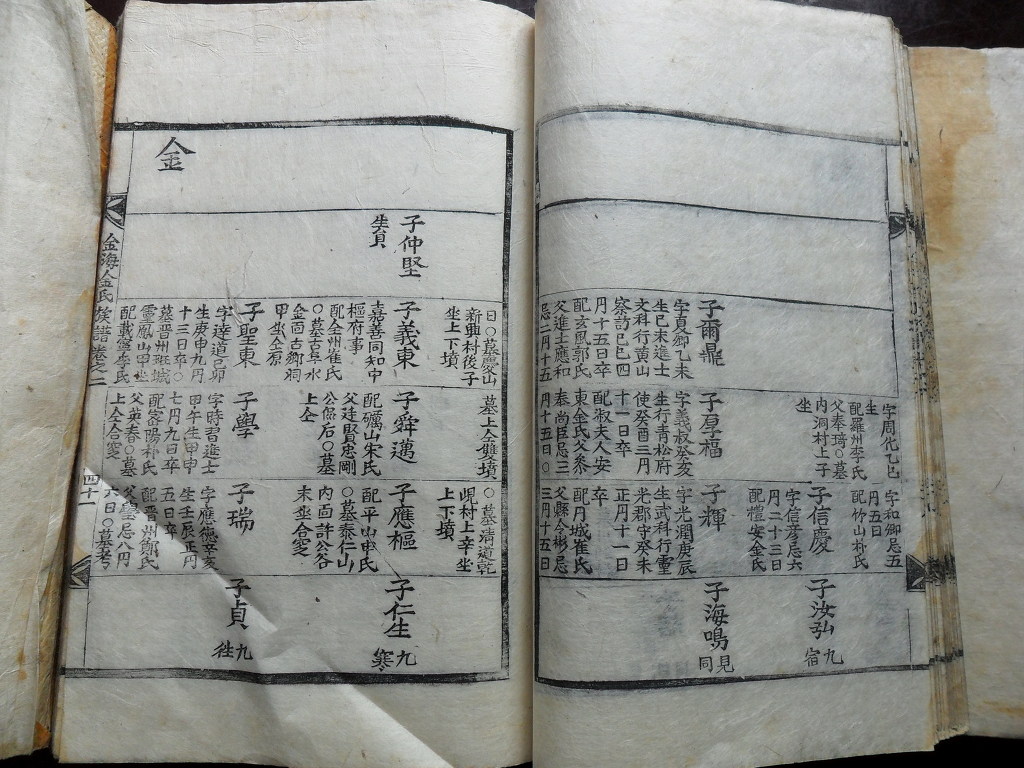 子爾鼎
字貞卿乙未
生已未進士
文科行黃山
察訪已巳四
月十五日卒
配玄風郭氏
父進士應和
忌二月十五
字周化乙巳
生
配羅州李氏
父奉琦○墓
內洞村上子
坐
子厚福
字義叔癸亥
生行青松府
使癸酉三月
十一日卒
配淑夫人安
東金氏父叅
奉尚臣忌三
月十五日○
字和卿忌五
月五日
配竹山朴氏
子信慶
字信彥忌六
月二十三日
配禮安金氏
子輝
字光潤庚辰
生武科行靈
光郡守癸未
正月十一日
卒
配月城崔氏
父縣令彬忌
三月十五日
子汝弘
九宿
子海鳴
見同
金
子仲堅
生員
日○墓慶山
新興村後子
坐上下墳
子義東
嘉善同知中
樞府事
配全州崔氏
○墓古阜水
金面古鄉洞
甲坐合祭
子聖東
字達道己卯
生庚申九月
十三日卒○
墓晉州班城
靈鳳山甲坐
配載寧李氏
墓上仝雙墳
子舜邁
配礪山宋氏
父廷賢忠剛
公侃后○墓
上仝
子學
字時習進士
甲午生甲申
七月九日卒
配密陽朴氏
父英春○墓
上仝合窆
○墓清道乾
峴村上辛坐
上下墳
子應樞
配平山申氏
○墓泰仁山
內面許公谷
未坐合窆
子瑞
字應德辛亥
生壬辰正月
五日卒
配晉州鄭氏
父忌八月
六日○墓考
子仁生
九寒
子貞
九往
金海金氏族譜卷之二
四十一